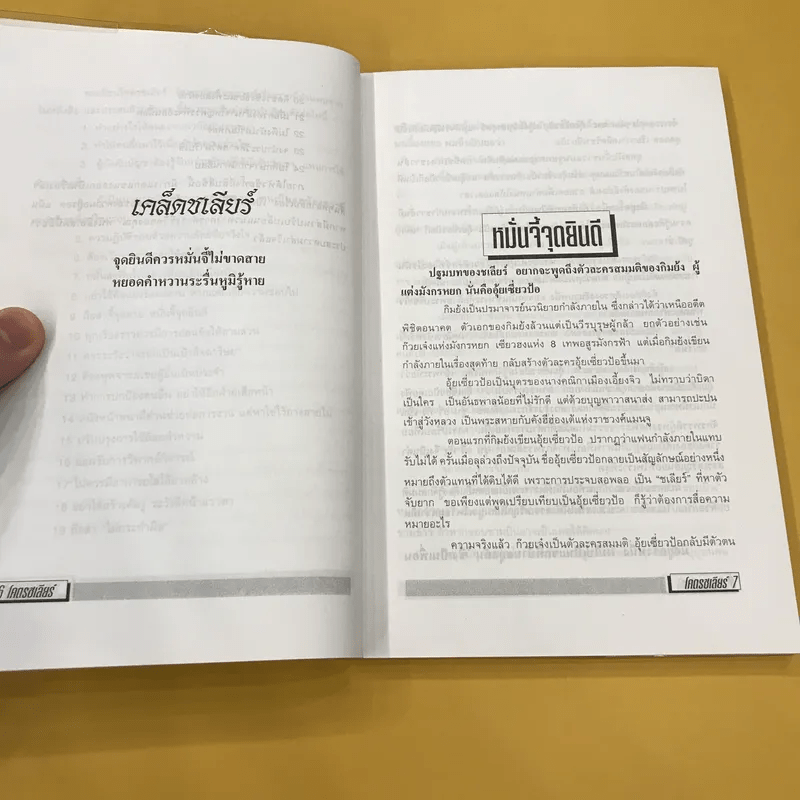 เคล็ดชเลียร์
จุดยินดีควรหมั่นจี้ไม่ขาดสาย
หยอดคำหวานระรื่นหูมิรู้หาย
6 โคตรชเลียร์
หมั่นจี้จุดยินดี
ปฐมบทของชเลียร์ อยากจะพูดถึงตัวละครสมมติของกิมย้ง ผู้
แต่งมังกรหยก นั่นคืออุ้ยเซี่ยวป้อ
กิมย้งเป็นปรมาจารย์นวนิยายกำลังภายใน ซึ่งกล่าวได้ว่าเหนืออดีต
พิชิตอนาคต ตัวเอกของกิมย้งล้วนแต่เป็นวีรบุรุษผู้กล้า ยกตัวอย่างเช่น
ก๊วยเจ๋งแห่งมังกรหยก เซียวฮงแห่ง 8 เทพอสูรมังกรฟ้า แต่เมื่อกิมย้งเขียน
กำลังภายในเรื่องสุดท้าย กลับสร้างตัวละครอุ้ยเซี่ยวป้อขึ้นมา
อุ้ยเซี่ยวป้อเป็นบุตรของนางคณิกาเมืองเอี้ยงจิว ไม่ทราบว่าบิดา
เป็นใคร เป็นอันธพาลน้อยที่ไม่รักดี แต่ด้วยบุญพาวาสนาส่ง สามารถปะปน
เข้าสู่วังหลวง เป็นพระสหายกับคังฮีฮ่องเต้แห่งราชวงค์แมนจู
ตอนแรกที่กิมย้งเขียนอุ้ยเซี่ยวป้อ ปรากฏว่าแฟนกำลังภายในแทบ
รับไม่ได้ ครั้นเมื่อลุล่วงถึงปัจจุบัน ชื่ออุ้ยเซี่ยวป้อกลายเป็นสัญลักษณ์อย่างหนึ่ง
หมายถึงตัวแทนที่ได้ดิบได้ดี เพราะการประจบสอพลอ เป็น "ชเลียร์" ที่หาตัว
จับยาก ขอเพียงแต่พูดเปรียบเทียบเป็นอุ้ยเซี่ยวป้อ ก็รู้ว่าต้องการสื่อความ
หมายอะไร
ความจริงแล้ว ก๊วยเจ๋งเป็นตัวละครสมมติ อุ้ยเซี่ยวป้อกลับมีตัวตน
โคตรชเลียร์ 7